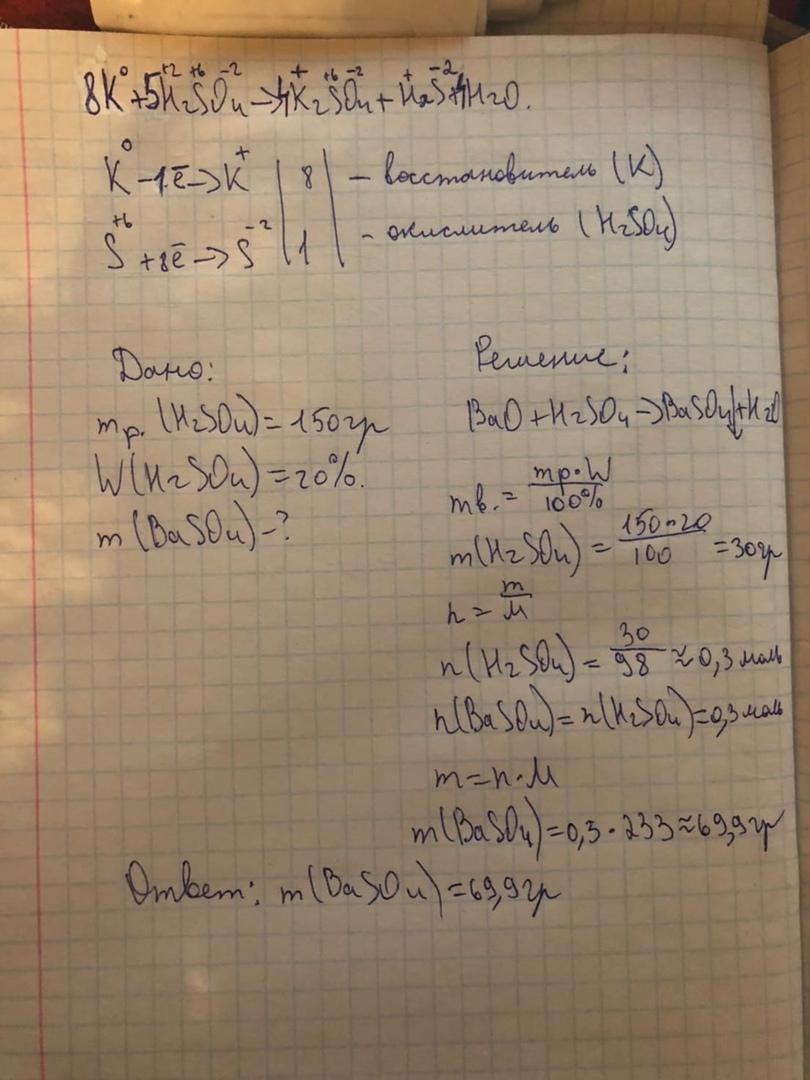 8K⁰+5H₂⁺²S⁺⁶O₄⁻²→4K₂⁺S⁺⁶O₄⁻²+H₂⁺S⁻²+4H₂O.
K⁰-1ē→K⁺ | 8 | - восстановитель (K)
S⁺⁶+8ē→S⁻² | 1 | - окислитель (H₂SO₄)
Дано:
mр.(H₂SO₄)=150гр
W(H₂SO₄)=20%.
m(BaSO₄)-?
Решение:
BaO+H₂SO₄→BaSO₄↓+H₂O
mв.=mр·W/100%
m(H₂SO₄)=150·20/100=30гр
n=m/M
n(H₂SO₄)=30/98≈0,3моль
n(BaSO₄)=n(H₂SO₄)=0,3моль
m=n·M
m(BaSO₄)=0,3·233≈69,9гр
Ответ: m(BaSO₄)=69,9гр